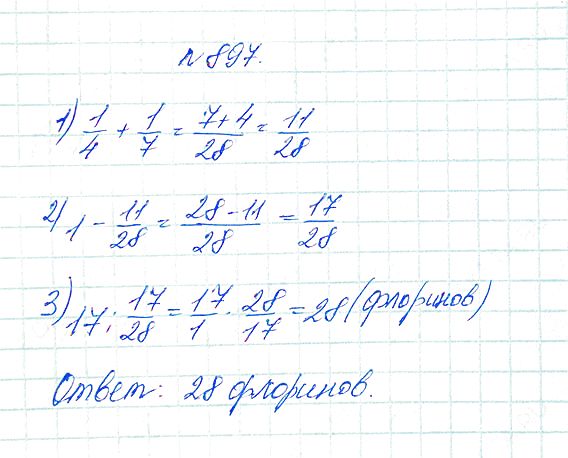 №897.
1) 1/4 + 1/7 = 7+4/28 = 11/28
2) 1 - 11/28 = 28-11/28 = 17/28
3) 17 : 17/28 = 17/1 · 28/17 = 28 (флоринов)
Ответ: 28 флоринов.